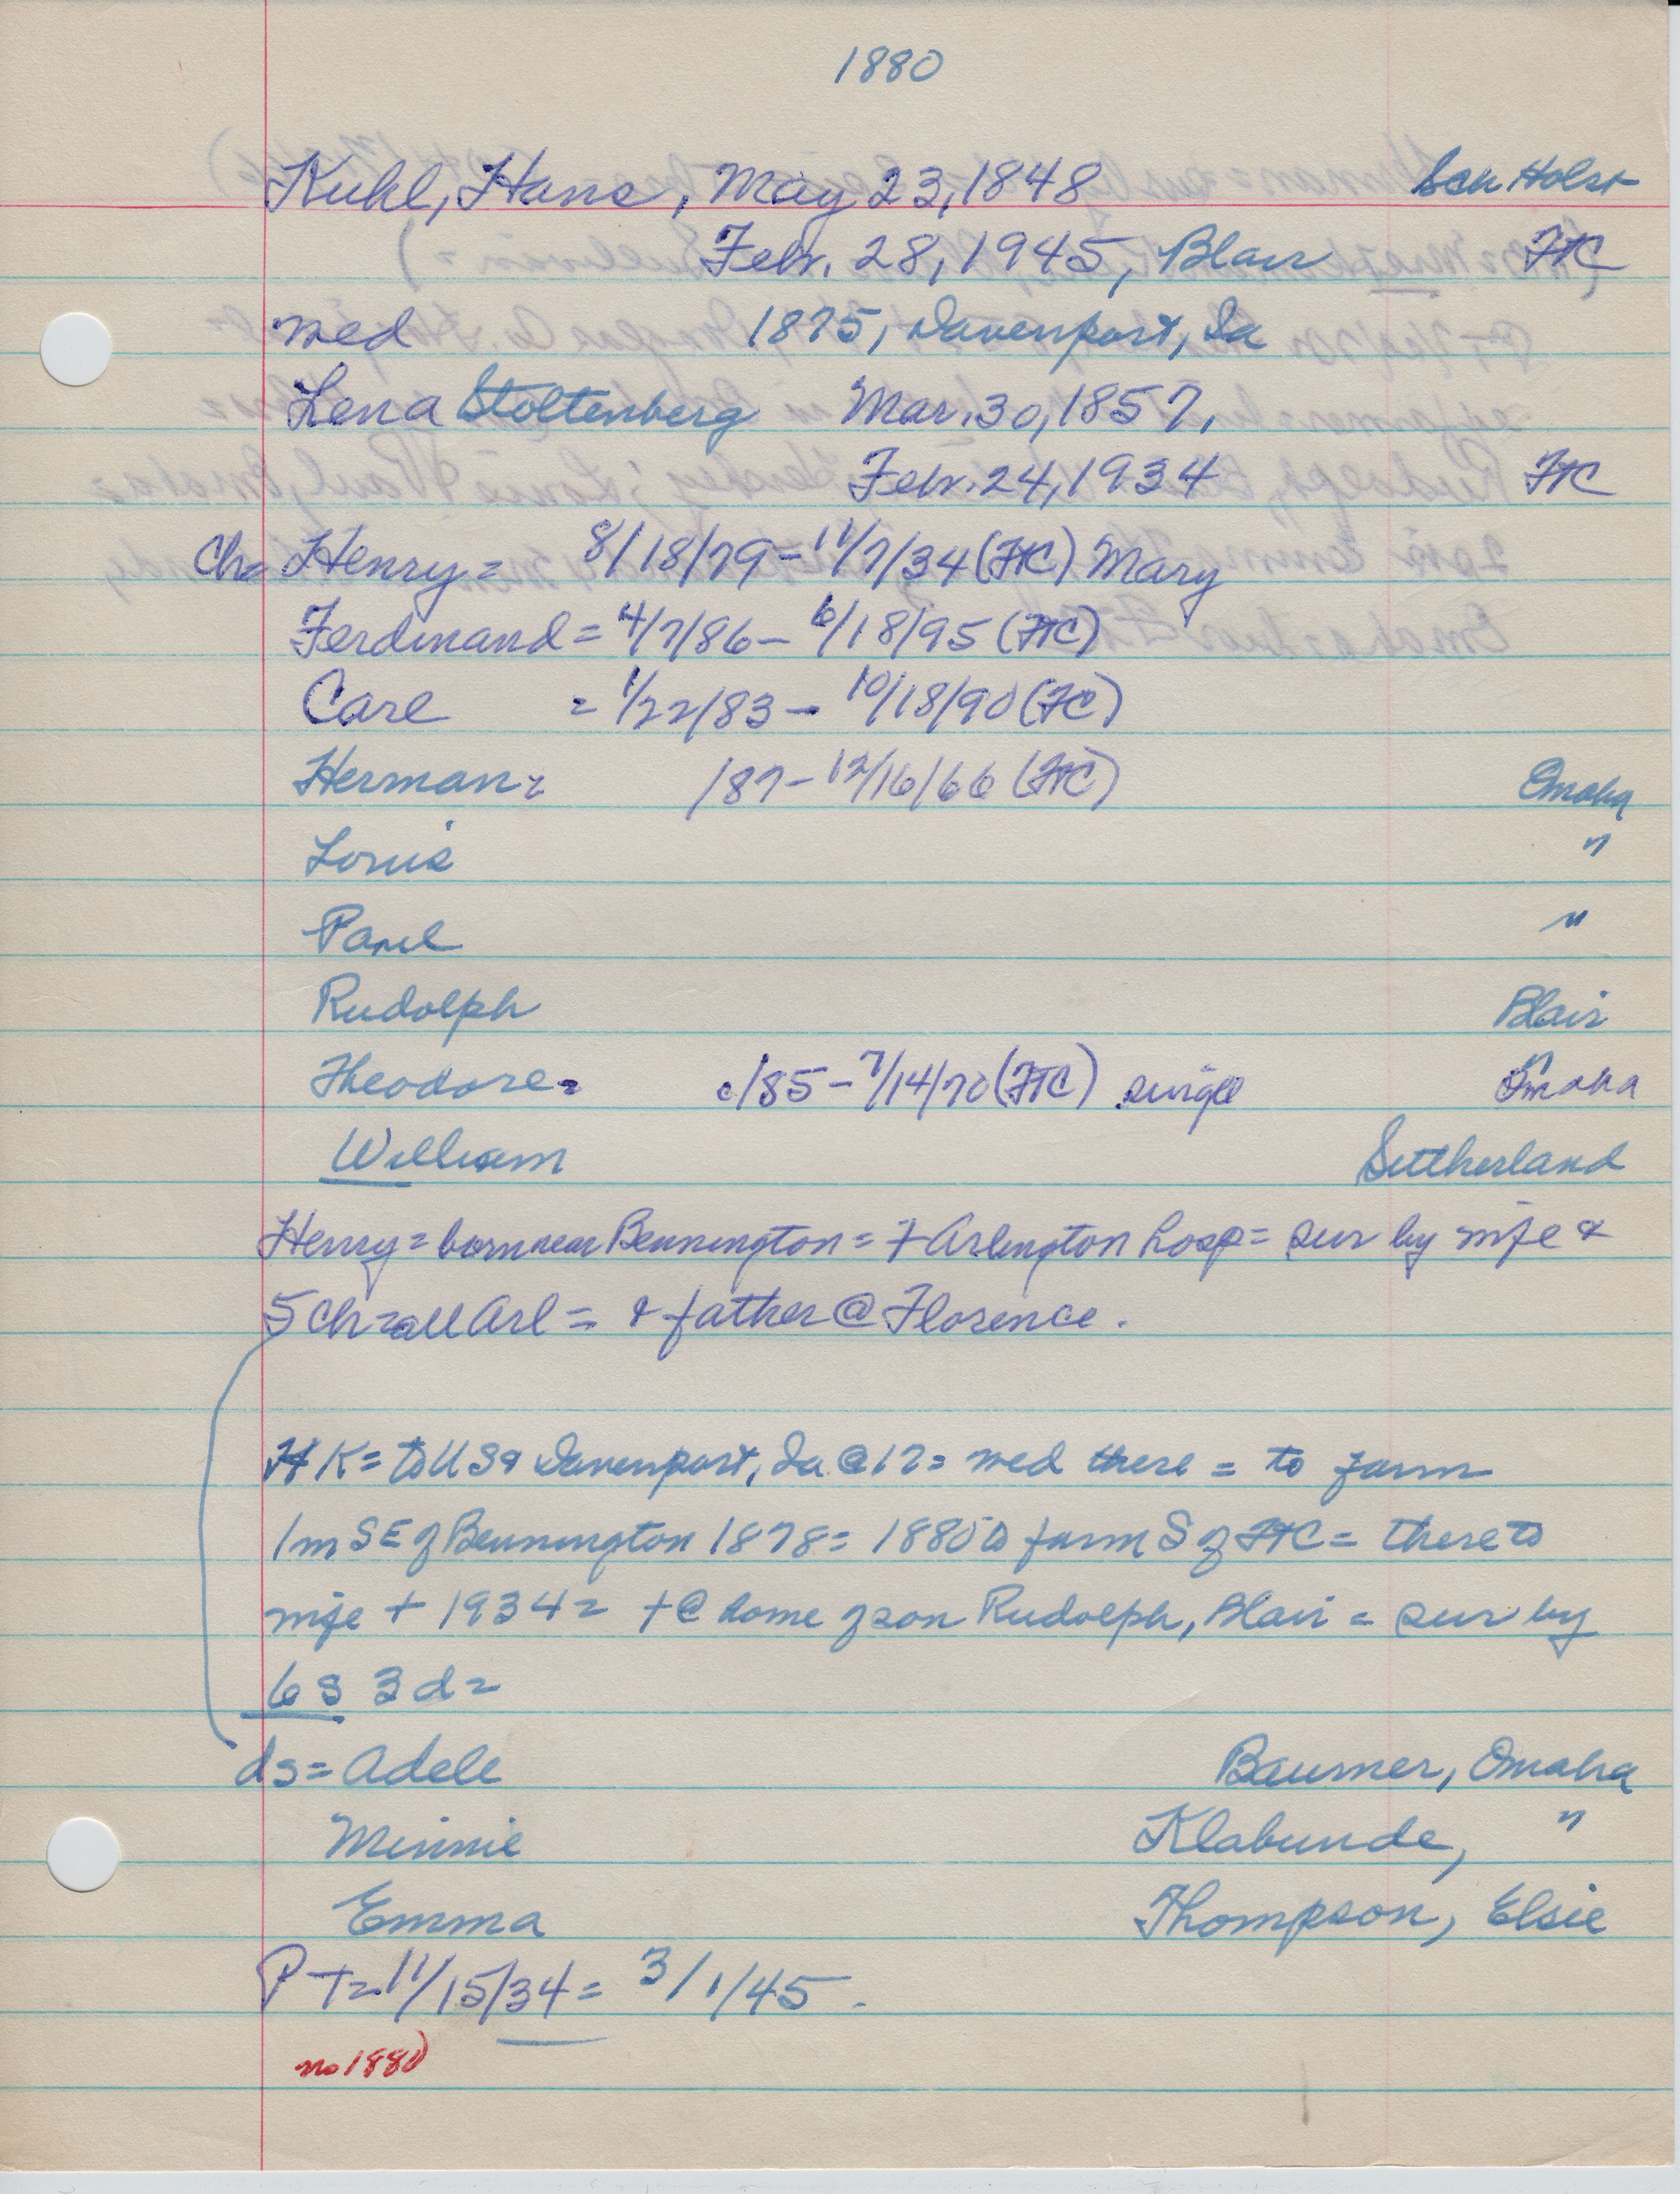 1880
Kuhl, Hans, May 23, 1848 Sch Holst
Febr. 28, 1945, Blair FtC
wed 1875, Davenport, Ia
Lena Stoltenberg Mar. 30, 1857,
Febr. 24, 1934 FtC
Ch= Henry = 8/18/79 - 11/7/34 (FtC) Mary
Ferdinand = 4/7/86 - 6/18/95 (FtC)
Carl = 1/22/83 - 10/18/90 (FtC)
Herman = /87 - 12/16/66 (FtC) Omaha
Louis "
Paul "
Rudolph Blair
Theodore = c/85 - 7/14/70 (FTC) single Omaha
William Sutherland
Henry = born near Bennington = + Arlington hosp = sur by wife &
5 ch = all Arl = & father @ Florence.
HK = to USa Davenport, Ia @ 17 = wed there = to farm
1 m SE of Bennington 1878 = 1880 to farm S of FtC = there to
wife + 1934 = + @ home of son Rudolph, Blair = sur by
6 s 3 d =
ds = Adele Baumer, Omaha
Minnie Klabunde, "
Emma Thompson, Elsie
PT = 11/15/34 = 3/1/45.
no 1880